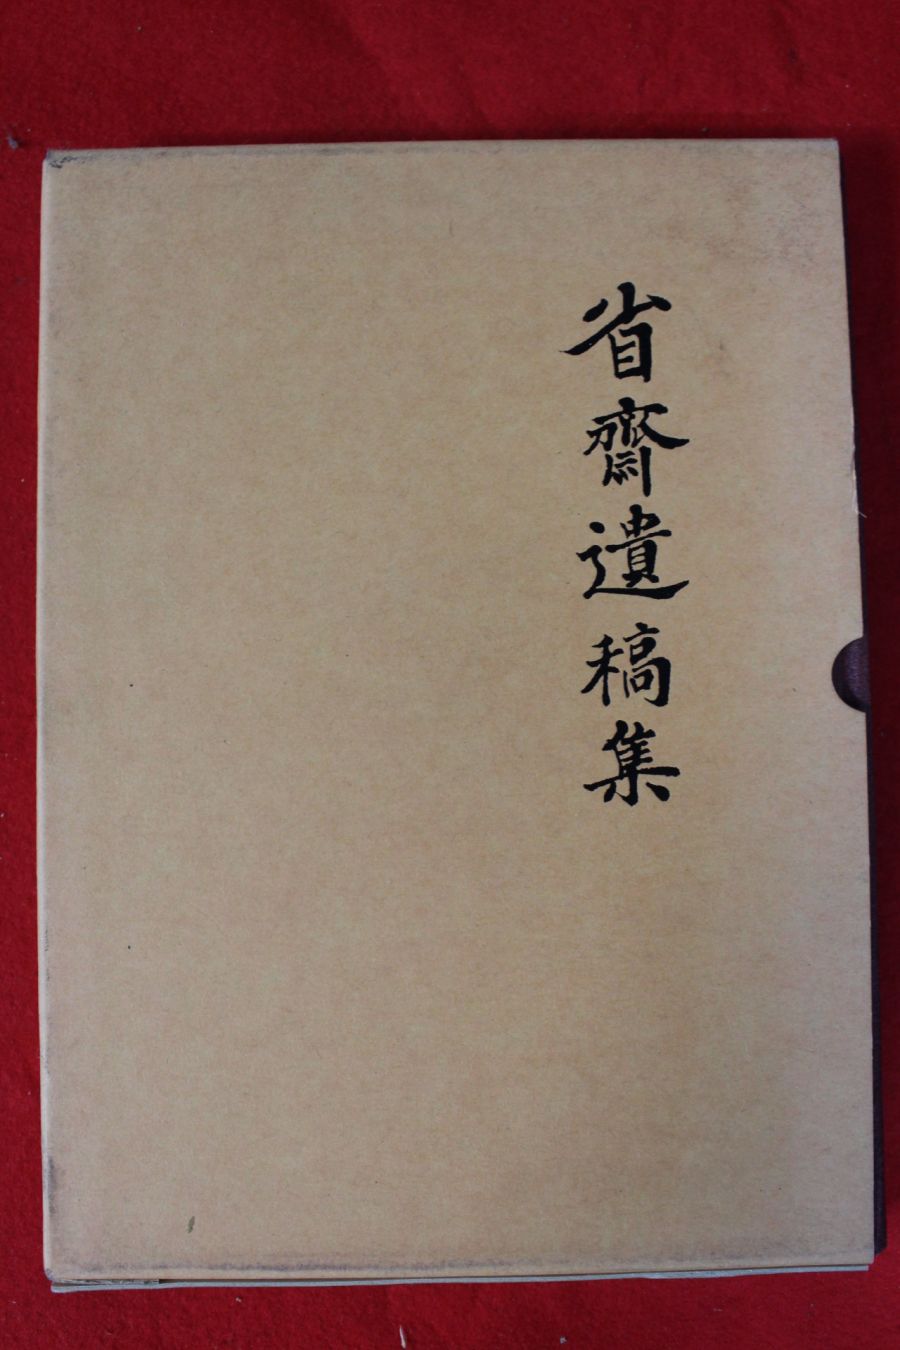 省齋遺稿集